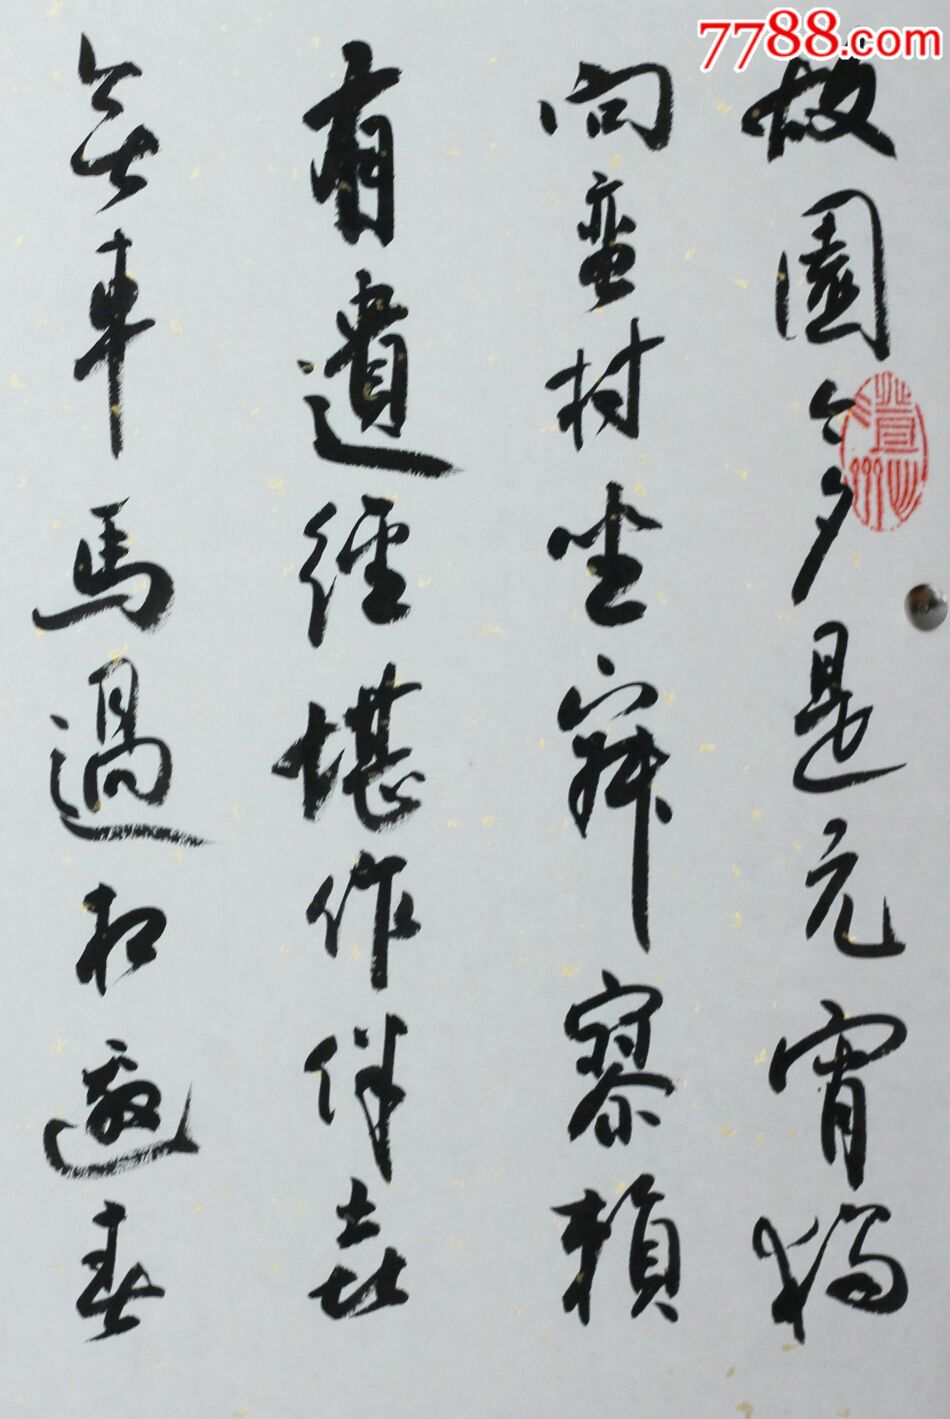 7788.com
故園今夕是元宵獨
向蛮村坐寂寥頼
有遺經堪作伴喜
無車馬過相邀春